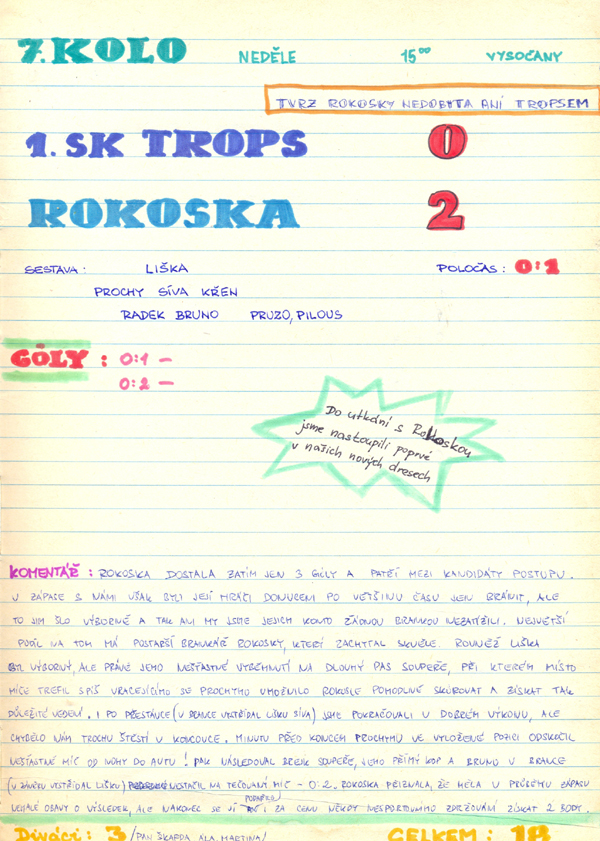 7. KOLO NEDĚLE 15⁰⁰ VYSOČANY
TVRZ ROKOSKY NEDOBYTA ANI TROPSEM
1. SK TROPS 0
ROKOSKA 2
SESTAVA: LIŠKA POLOČAS: 0:1
PROCHY SÍVA KŘEN
RADEK BRUNO PRUZO, PILOUS
GÓLY: 0:1 —
0:2 —
Do utkání s Rokoskou
jsme nastoupili poprvé
v našich nových dresech
KOMENTÁŘ: ROKOSKA DOSTALA ZATÍM JEN 3 GÓLY A PATŘÍ MEZI KANDIDÁTY POSTUPU.
V ZÁPASE S NÁMI VŠAK BYLI JEJÍ HRÁČI DONUCENI PO VĚTŠINU ČASU JEN BRÁNIT, ALE
TO JIM ŠLO VÝBORNĚ A TAK ANI MY JSME JEJICH KONTO ŽÁDNOU BRANKOU NEZATÍŽILI. NEJVĚTŠÍ
PODÍL NA TOM MÁ POSTARŠÍ BRANKÁŘ ROKOSKY, KTERÝ ZACHYTAL SKVĚLE. ROVNĚŽ LIŠKA
BYL VÝBORNÝ, ALE PRÁVĚ JEHO NEŠŤASTNÉ VYBĚHNUTÍ NA DLOUHÝ PAS SOUPEŘE, PŘI KTERÉM MÍSTO
MÍČE TREFIL SPÍŠ VRACEJÍCÍHO SE PROCHYHO UMOŽNILO ROKOSCE POHODLNĚ SKÓROVAT A ZÍSKAT TAK
DŮLEŽITÉ VEDENÍ. I PO PŘESTÁVCE (V BRANCE VYSTŘÍDAL LIŠKU SÍVA) JSME POKRAČOVALI V DOBRÉM VÝKONU, ALE
CHYBĚLO NÁM TROCHU ŠTĚSTÍ V KONCOVCE. MINUTU PŘED KONCEM PROCHYMU VE VYLOŽENÉ POZICI ODSKOČIL
NEŠŤASTNĚ MÍČ OD NOHY DO AUTU! PAK NÁSLEDOVAL BREJK SOUPEŘE, JEHO PŘÍMÝ KOP A BRUNO V BRANCE
(V ZÁVĚRU VYSTŘÍDAL LIŠKU) NESTAČIL NA TEČOVANÝ MÍČ - 0:2. ROKOSKA PŘIZNALA, ŽE MĚLA V PRŮBĚHU ZÁPASU
NEMALÉ OBAVY O VÝSLEDEK, ALE NAKONEC SE JÍ PODAŘILO I ZA CENU NĚKDY NESPORTOVNÍHO ZDRŽOVÁNÍ ZÍSKAT 2 BODY.
Diváci: 3 /PAN ŠKARDA, ÁLA, MARTINA/ CELKEM: 18